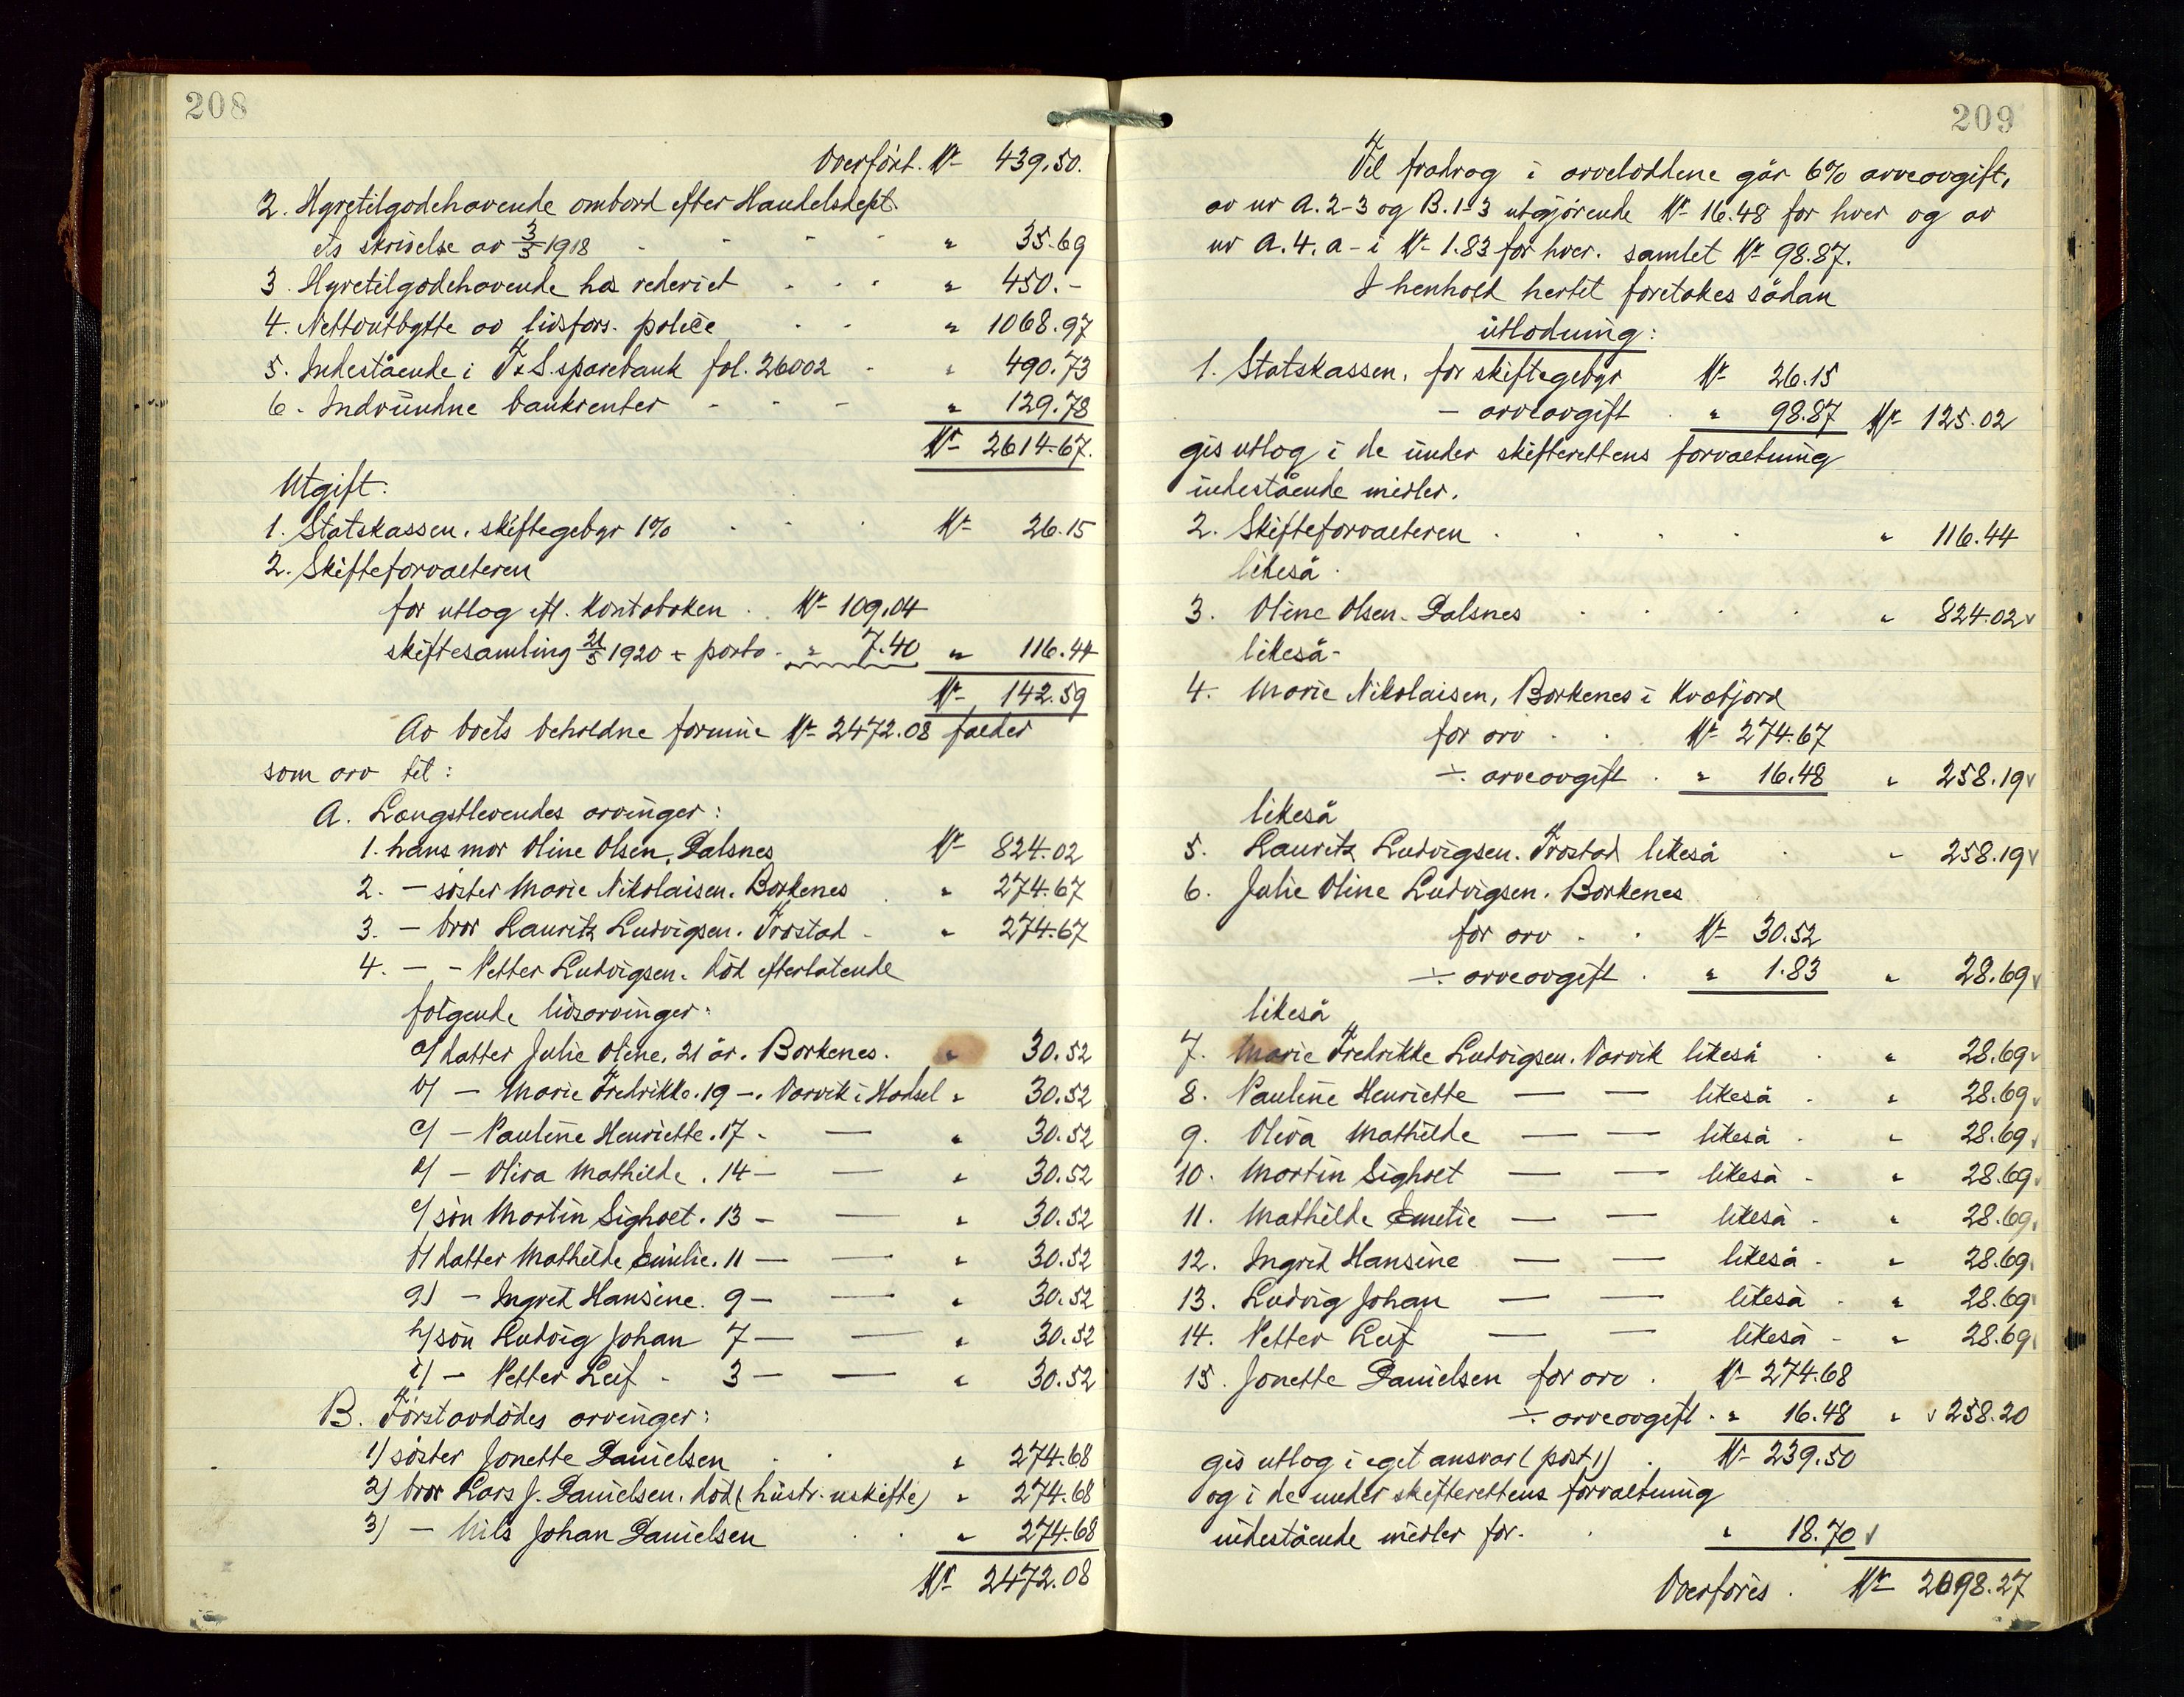 208
Overført. Kr 439.50.
2. Hyretilgodehavende ombord efter Handelsdept.
ets skrivelse av 3/5 1918 - - - - " 35.69
3. Hyretilgodehavende hos rederiet . . . " 450.-
4. Nettoutbytte av livsfors. police . . " 1068.97
5. Indestående i T.&S. sparebank fol. 26002 - " 490.73
6. Indvundne bankrenter - - - " 129.78
Kr 2614.67.
Utgift.
1. Statskassen. skiftegebyr 1% . . . Kr 26.15
2. Skifteforvalteren
for utlæg eft. kontoboken . Kr 109.04
skiftesamling 21/5 1920 + porto - " 7.40 " 116.44
Kr 142.59
Av boets beholdne formue Kr 2472.08 falder
som arv til:
A. Længstlevendes arvinger:
1. hans mor Oline Olsen, Dalsnes Kr 824.02
2. - søster Marie Nikolaisen. Borkenes . " 274.67
3. - bror Lauritz Ludvigsen. Trøstad - " 274.67
4. - - Petter Ludvigsen. død efterlatende
følgende livsarvinger:
a) datter Julie Oline, 21 år. Borkenes. " 30.52
b) - Marie Fredrikke. 19 -. Narvik i Hadsel " 30.52
c) - Pauline Henriette. 17 - — " 30.52
d) - Oliva Mathilde. 14 - — " 30.52
e) søn Martin Sighvet. 13 - — " 30.52
f) datter Mathilde Emilie. 11 - — " 30.52
g) - Ingrid Hansine. 9 - — " 30.52
h) søn Ludvig Johan 7 - — " 30.52
i) - Petter Leif - 3 - — " 30.52
B. Førstavdødes arvinger:
1) søster Jonette Danielsen . . " 274.68
2) bror Lars J. Danielsen. død (hustr. uskifte) " 274.68
3) - Nils Johan Danielsen . . " 274.68
Kr 2472.08
209
Til fradrag i arvelodderne går 6% arveavgift,
av nr A. 2-3 og B. 1-3 utgjørende Kr 16.48 for hver og av
nr A. 4. a - i Kr 1.83 for hver. samlet Kr 98.87.
I henhold hertil foretakes sådan
utlodning:
1. Statskassen, for skiftegebyr Kr 26.15
- arveavgift . " 98.87 Kr 125.02
gis utlæg i de under skifterettens forvaltning
indestående midler.
2. Skifteforvalteren . . . . " 116.44
likeså -
3. Oline Olsen. Dalsnes . . . . " 824.02 v
likeså -
4. Marie Nikolaisen, Borkenes i Kvæfjord
for arv . . Kr 274.67
÷ arveavgift . " 16.48 " 258.19 v
likeså
5. Lauritz Ludvigsen. Trøstad likeså . " 258.19 v
6. Julie Oline Ludvigsen. Borkenes
for arv - . Kr 30.52
÷ arveavgift . " 1.83 " 28.69 v
likeså
7. Marie Fredrikke Ludvigsen. Narvik likeså . " 28.69 v
8. Pauline Henriette — — likeså . " 28.69 v
9. Oliva Mathilde — — likeså . " 28.69 v
10. Martin Sighvet — — likeså - " 28.69 v
11. Mathilde Emelie — — likeså . " 28.69 v
12. Ingrid Hansine — — likeså - " 28.69 v
13. Ludvig Johan — — likeså . " 28.69 v
14. Petter Leif — — likeså - " 28.69 v
15. Jonette Danielsen for arv . Kr 274.68
÷ arveavgift . " 16.48 " v 258.20
gis utlæg i eget ansvar (post 1) . Kr 239.50
og i de under skifterettens forvaltning
indestående midler for . . " 18.70 v
Overføres . Kr 2098.27